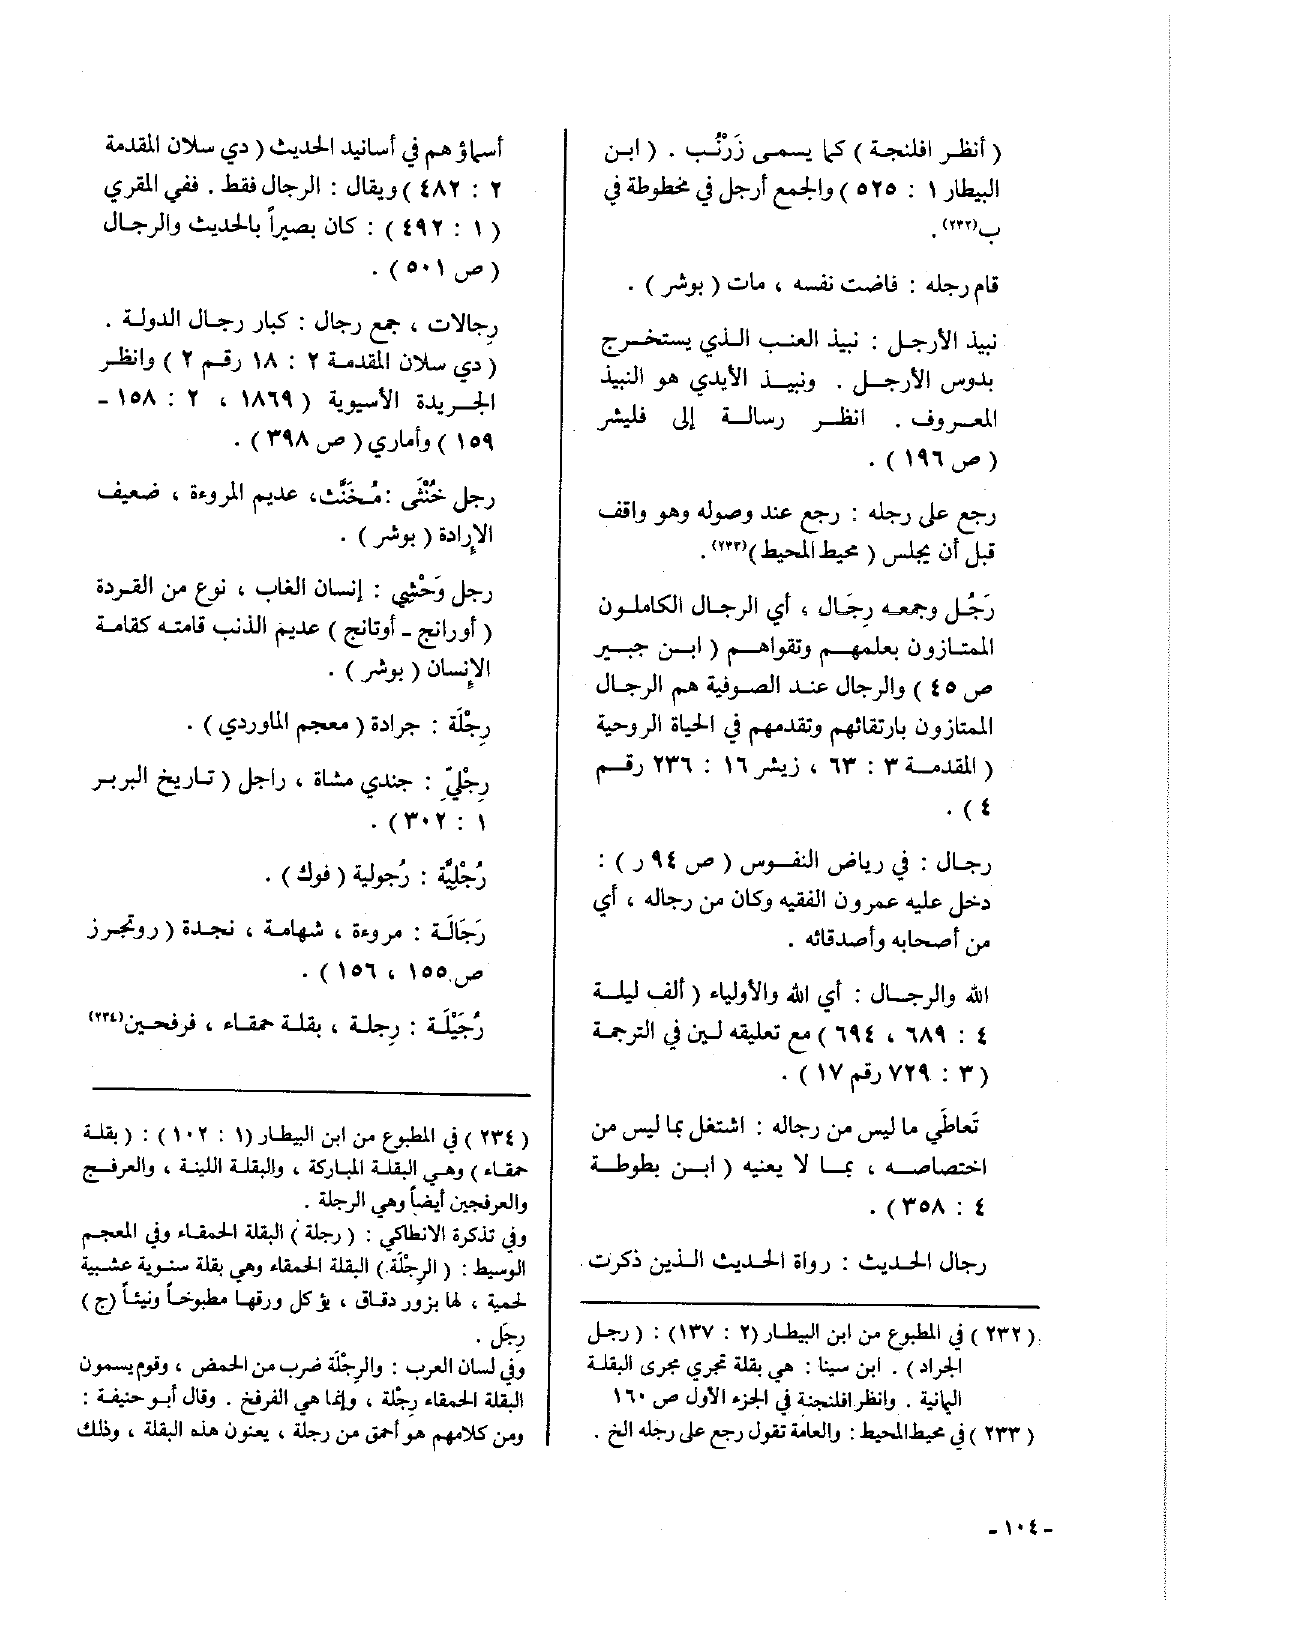 ( أنظر افلنجة ) كما يسمى زَرْنُب . ( ابن
البيطار ١ : ٥٢٥ ) والجمع أرجل في مخطوطة في
ب(٢٣٢) .
قام رجله : فاضت نفسه ، مات ( بوشر ) .
نبيذ الأرجل : نبيذ العنب الذي يستخرج
بدوس الأرجل . ونبيذ الأيدي هو النبيذ
المعروف . انظر رسالة إلى فليشر
( ص ١٩٦ ) .
رجع على رجله : رجع عند وصوله وهو واقف
قبل أن يجلس ( محيط المحيط )(٢٣٣) .
رَجُل وجمعه رِجَال ، أي الرجال الكاملون
الممتازون بعلمهم وتقواهم ( ابن جبير
ص ٤٥ ) والرجال عند الصوفية هم الرجال
الممتازون بارتقائهم وتقدمهم في الحياة الروحية
( المقدمة ٣ : ٦٣ ، زيشر ١٦ : ٢٣٦ رقم
٤ ) .
رجال : في رياض النفوس ( ص ٩٤ ر ) :
دخل عليه عمرون الفقيه وكان من رجاله ، أي
من أصحابه وأصدقائه .
الله والرجال : أي الله والأولياء ( ألف ليلة
٤ : ٦٨٩ ، ٦٩٤ ) مع تعليقه لين في الترجمة
( ٣ : ٧٢٩ رقم ١٧ ) .
تَعاطَى ما ليس من رجاله : اشتغل بما ليس من
اختصاصه ، بما لا يعنيه ( ابن بطوطة
٤ : ٣٥٨ ) .
رجال الحديث : رواة الحديث الذين ذكرت
( ٢٣٢ ) في المطبوع من ابن البيطار (٢ : ١٣٧) : ( رجل
الجراد ) . ابن سينا : هي بقلة تجري مجرى البقلة
اليمانية . وانظر افلنجنة في الجزء الأول ص ١٦٠
( ٢٣٣ ) في محيط المحيط : والعامة تقول رجع على رجله الخ .
أسماؤهم في أسانيد الحديث ( دي سلان المقدمة
٢ : ٤٨٢ ) ويقال : الرجال فقط . ففي المقري
( ١ : ٤٩٢ ) : كان بصيراً بالحديث والرجال
( ص ٥٠١ ) .
رِجالات ، جمع رجال : كبار رجال الدولة .
( دي سلان المقدمة ٢ : ١٨ رقم ٢ ) وانظر
الجريدة الأسيوية ( ١٨٦٩ ، ٢ : ١٥٨ -
١٥٩ ) وأماري ( ص ٣٩٨ ) .
رجل خُنْثَى : مُخَنَّث، عديم المروءة ، ضعيف
الإرادة ( بوشر ) .
رجل وَحْشِي : إنسان الغاب ، نوع من القردة
( أورانج - أوتانج ) عديم الذنب قامته كقامة
الإنسان ( بوشر ) .
رِجْلَة : جرادة ( معجم الماوردي ) .
رِجْلِيّ : جندي مشاة ، راجل ( تاريخ البربر
١ : ٣٠٢ ) .
رُجْلِيَّة : رُجولية ( فوك ) .
رَجَالَة : مروءة ، شهامة ، نجدة ( روتجرز
ص ١٥٥ ، ١٥٦ ) .
رُجَيْلَة : رِجلة ، بقلة حمقاء ، فرفحين(٢٣٤)
( ٢٣٤ ) في المطبوع من ابن البيطار (١ : ١٠٢) : ( بقلة
حمقاء ) وهي البقلة المباركة ، والبقلة اللينة ، والعرفج
والعرفجين أيضاً وهي الرجلة .
وفي تذكرة الانطاكي : ( رجلة ) البقلة الحمقاء وفي المعجم
الوسيط : ( الرِجْلَة ) البقلة الحمقاء وهي بقلة سنوية عشبية
لحمية ، لها بزور دقاق ، يؤكل ورقها مطبوخاً ونيئاً (ج )
رِجَل .
وفي لسان العرب : والرِجْلَة ضرب من الحمض ، وقوم يسمون
البقلة الحمقاء رِجْلة ، وإنما هي الفرفخ . وقال أبو حنيفة :
ومن كلامهم هو أحمق من رجلة ، يعنون هذه البقلة ، وذلك
- ١٠٤ -